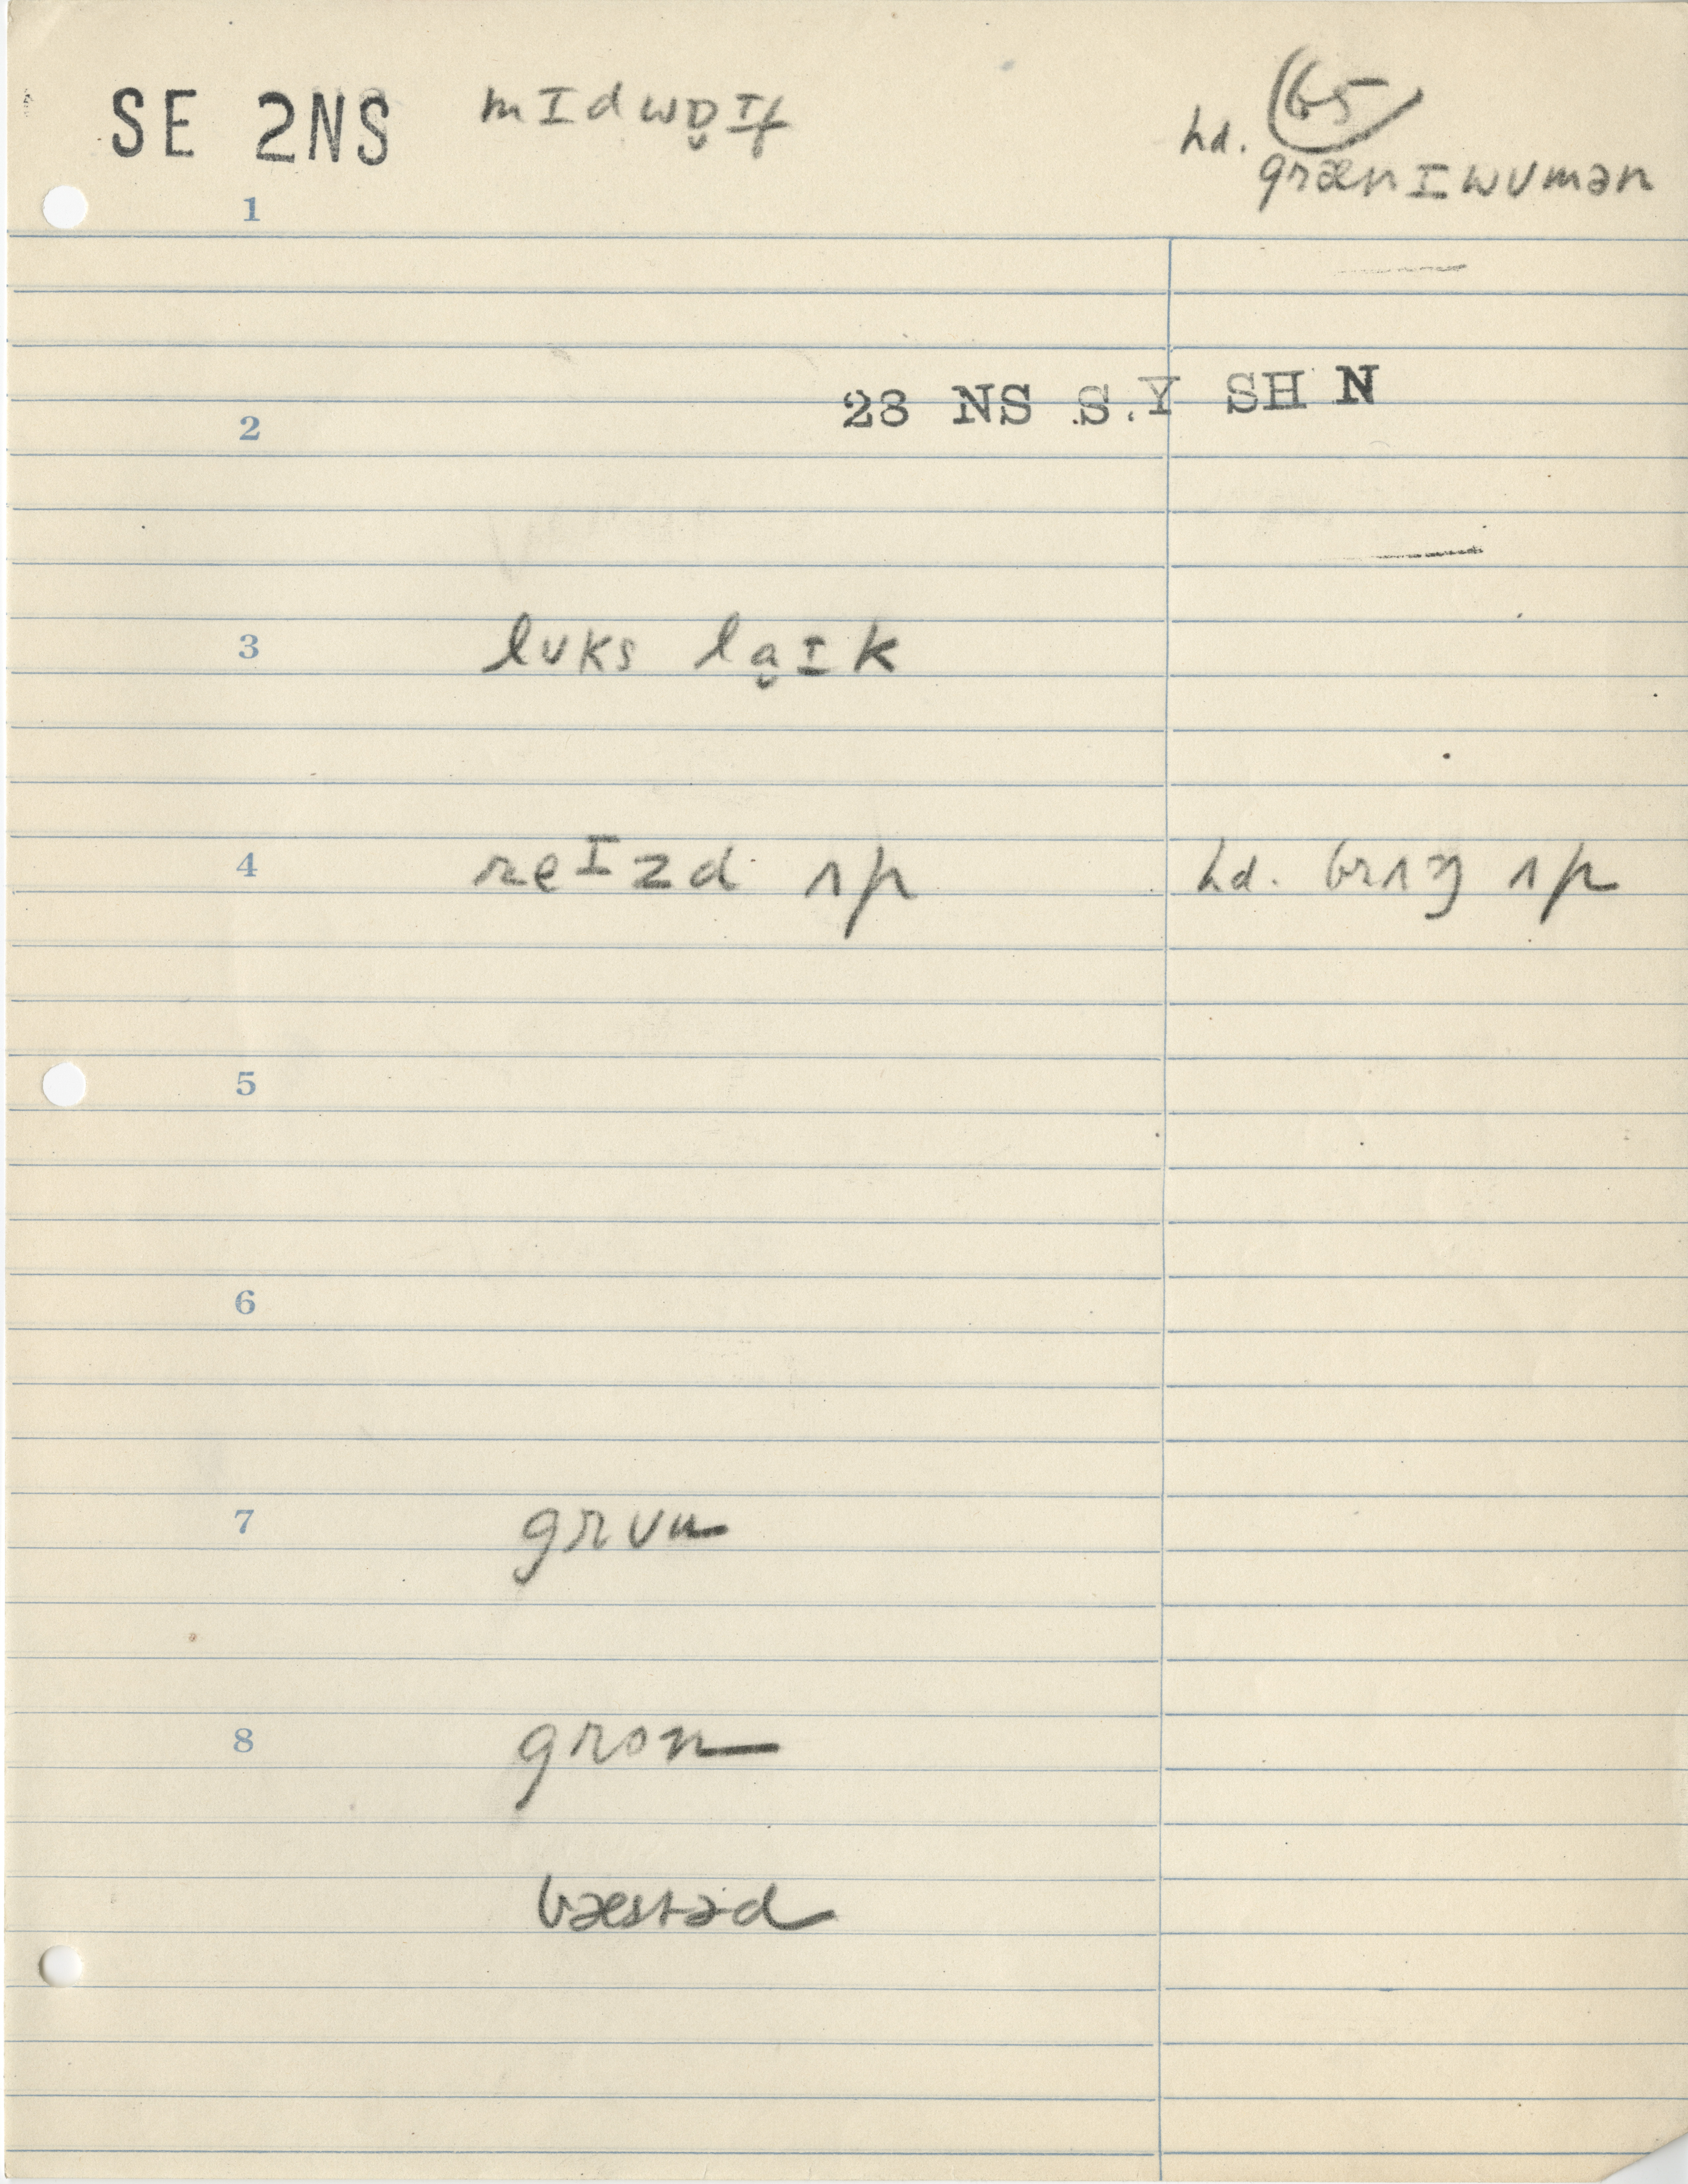 SE 2NS mɪdwɒ̯ɪf hd. 65
grænɪwʊmən
1
28 NS S.Y SH N
2
3 lʊks la̯ɪk
4 reɪzd ʌp hd. brʌŋ ʌp
5
6
7 grʊu
8 gron
bæstəd